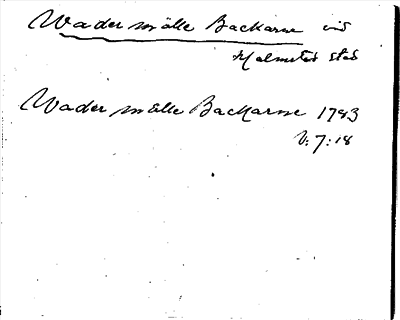 Wader mölle Backarne vid
Halmsted stad
Wader mölle Backarne 1793
V: 7: 18